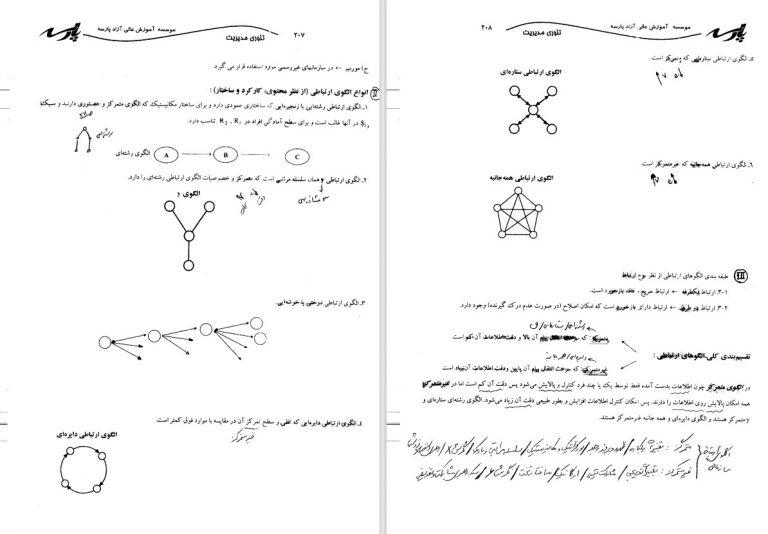 موسسه آموزش عالی آزاد پارسه
تئوری مدیریت
۲۰۷
ج) مورب ← در سازمانهای غیررسمی مورد استفاده قرار می گیرد.
انواع الگوی ارتباطی (از نظر محتوی، کارکرد و ساختار) :
۱. الگوی ارتباطی رشته‌ایی یا زنجیره‌ایی که ساختاری عمودی دارد و برای ساختار مکانیستیک که الگوی متمرکز و دستوری دارند و سبک
S₁ در آنها غالب است و برای سطح آمادگی افراد در R₁ ، R₂ تناسب دارد.
الگوی رشته‌ای
A B C
۲. الگوی ارتباطی y همان سلسله مراتبی است که متمرکز و خصوصیات الگوی ارتباطی رشته‌ای را دارد.
الگوی y
۳. الگوی ارتباطی درختی یا خوشه‌ایی.
۴. الگوی ارتباطی دایره‌ایی که افقی و سطح تمرکز آن در مقایسه با موارد فوق کمتر است.
غیرمتمرکز
الگوی ارتباطی دایره‌ای
موسسه آموزش عالی آزاد پارسه
تئوری مدیریت
۲۰۸
۵. الگوی ارتباطی ستاره‌ایی که متمرکز است.
الگوی ارتباطی ستاره‌ای
۶. الگوی ارتباطی همه‌جانبه که غیرمتمرکز است.
الگوی ارتباطی همه‌جانبه
III طبقه بندی الگوهای ارتباطی از نظر نوع ارتباط
۳-۱ ارتباط یکطرفه ← ارتباط سریع، فاقد بازخورد است.
۳-۲ ارتباط دو طرفه ← ارتباط دارای بازخورد است که امکان اصلاح (در صورت عدم درک گیرنده) وجود دارد.
متمرکز: که سرعت انتقال پیام آن بالا و دقت اطلاعات آن کم است
تقسیم‌بندی کلی الگوهای ارتباطی :
غیرمتمرکز: که سرعت انتقال پیام آن پایین و دقت اطلاعات آن زیاد است
در الگوی متمرکز چون اطلاعات بدست آمده فقط توسط یک یا چند فرد کنترل و پالایش می‌شود پس دقت آن کم است اما در غیرمتمرکز
همه امکان پالایش روی اطلاعات را دارند. پس امکان کنترل اطلاعات افزایش و بطور طبیعی دقت آن زیاد می‌شود. الگوی رشته‌ای ستاره‌ای و
y متمرکز هستند و الگوی دایره‌ای و همه جانبه غیرمتمرکز هستند.